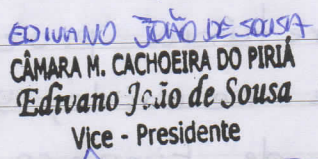 EDIVANO JOÃO DE SOUSA
CÂMARA M. CACHOEIRA DO PIRIÁ
Edivano João de Sousa
Vice - Presidente